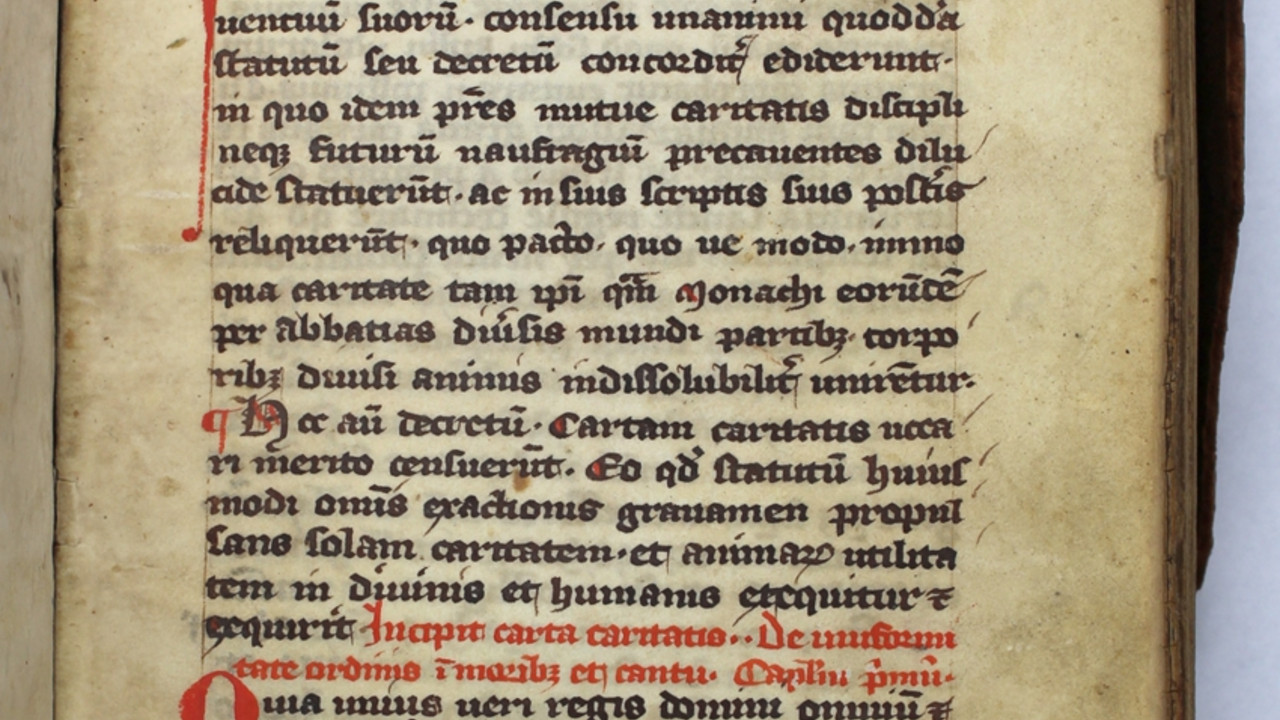 uentiuū suorū. consensu unanimi quoddā
statutū seu decretū concordit̾ ediderunt.
in quo idem pr̄es mutue caritatis discipli
neqꝫ futurū naufragiū precauentes dilu
cide statuerūt. ac in suis scriptis suis post̾is
reliquerūt. quo pacto. quo ue modo. immo
qua caritate tam ip̄i qm̄ Monachi eorūdē
per abbatias diu̾sis mundi partibꝫ corpo
ribꝫ diuisi animis indissolubilit̾ unirētur.
¶ Hoc aūt decretū. Cartam caritatis uoca
ri merito censuerūt. Eo qd̾ statutū huius
modi om̄is exactionis grauamen propul
sans solam caritatem. et animaꝝ utilita
tem in diuinis et humanis exequitur ⁊
exquirit Incipit carta caritatis.. De uniformi
tate ordinis ī moribꝫ et cantu. Cap̄lm p̄mū.
Quia unius ueri regis domini omniū ⁊